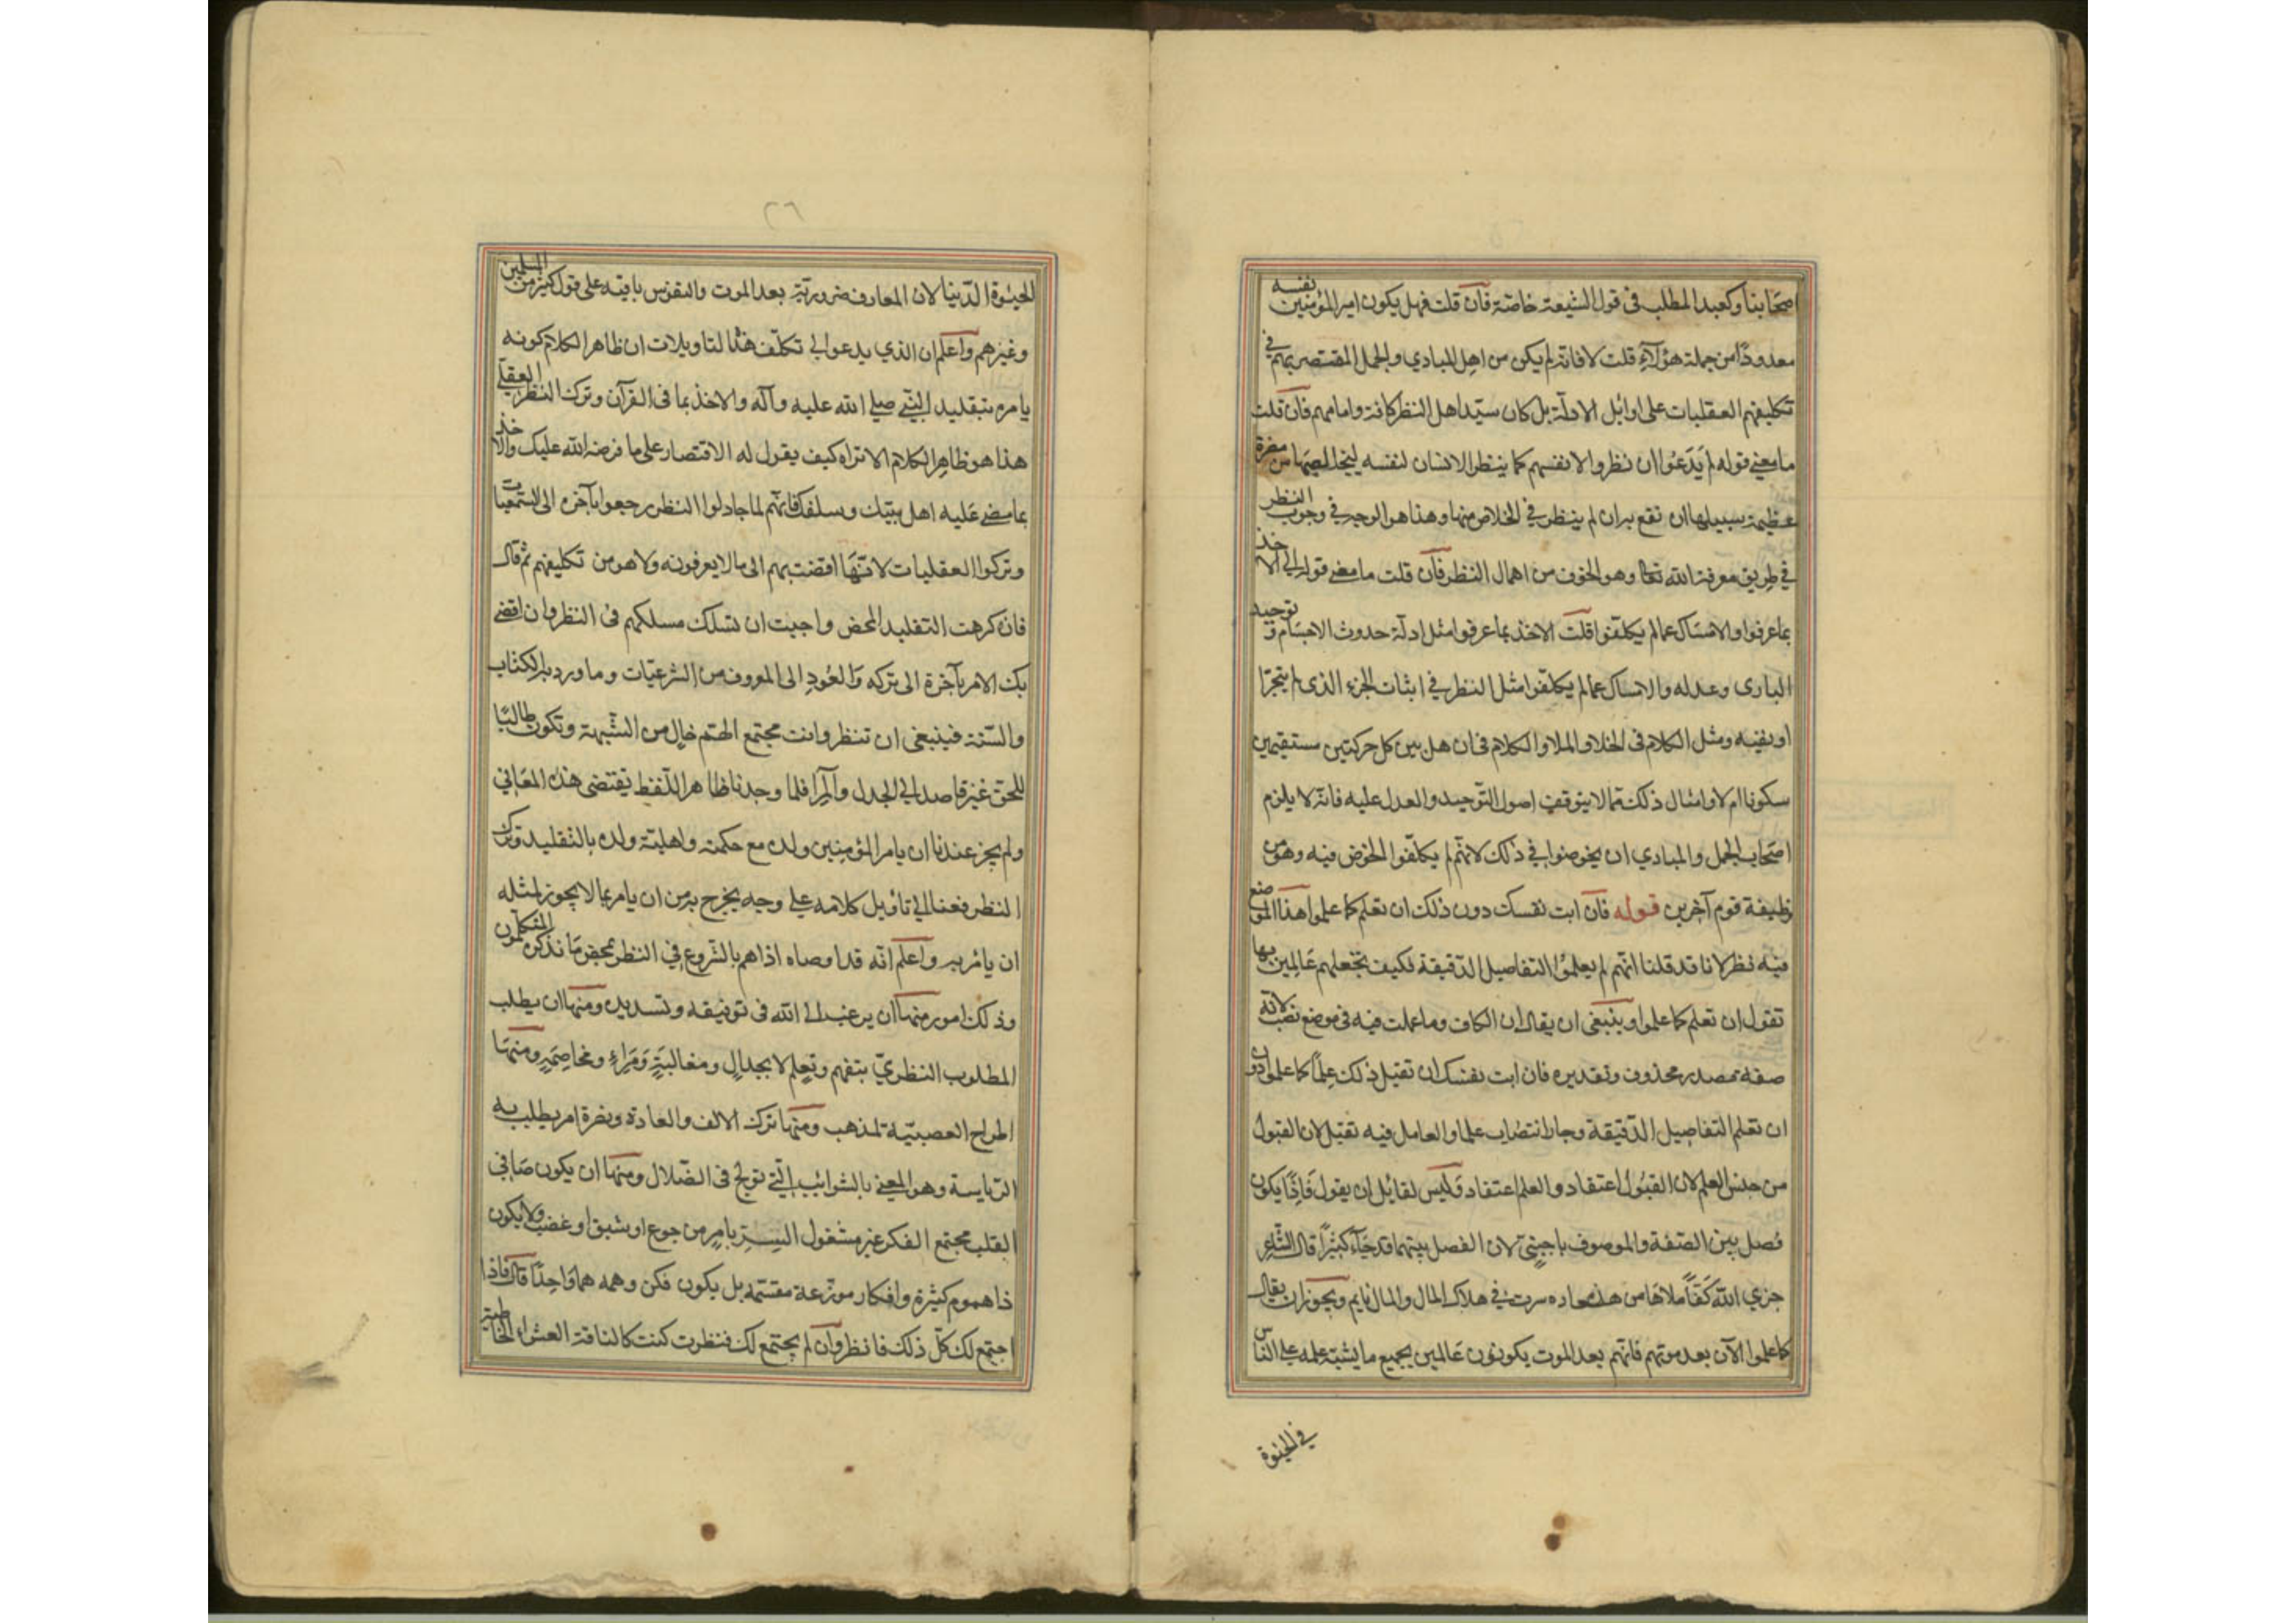 اصحابنا وكعبد المطلب فى قول الشيعة خاصّة فان قلت فهل يكون امير المؤمنين نفسه
معدودًا من جملة هؤلآء قلت لا فانّه لم يكن من اهل المبادي والجمل المقتصر بهم في
تكليفهم العقليات على اوائل الادلّة بل كان سيّد اهل النظر كافة وامامهم فان قلت
ما معنى قوله لم يَدَعُوا ان نظروا لانفسهم كما ينظر الانسان لنفسه ليخلصها من مضرة
عظيمة سبيلها ان تقع به ان لم ينظر في الخلاص منها وهذا هو الوجه في وجوب النظر
في طريق معرفة الله تعا وهو الخوف من اهمال النظر فان قلت ما معنى قوله الى الاخذ
بما عرفوا والامساك عما لم يكلفوا قلت الاخذ بما عرفوا مثل ادلّة حدوث الاجسام و توحيد
البارى وعدله والامساك عما لم يكلّفوا مثل النظر في اثبات الجزء الذى لم يتجزا
او نفيه ومثل الكلام فى الخلا والملا والكلام فى ان هل بين كل حركتين مستقيمين
سكونا ام لا وامثال ذلك ممّا لا يتوقف اصول التّوحيد والعدل عليه فانّه لا يلزم
اصحاب الجمل والمبادي ان يخوضوا في ذلك لانّهم لم يكلّفوا الخوض فيه وهو من
وظيفة قوم آخرين قوله فان ابت نفسك دون ذلك ان تعلم كما علموا هذا الموضع
فيه نظر لانا قد قلنا انّهم لم يعلموا التفاصيل الدّقيقة فكيف تجعلهم عَالِمين بها
تقول ان تعلم كما علموا وينبغى ان يقال ان الكاف وما عملت فيه فى موضع نصب لانّه
صفة مصدر محذوف وتقديره فان ابت نفسك ان تقبل ذلك عِلماً كما علموا دون
ان تعلم التفاصيل الدّقيقة وجاز انتصاب علما والعامل فيه تقبل لان القبول
من جنس العلم لان القبُول اعتقاد والعلم اعتقاد وَليس لقائل ان يقول فَاِذًا يكون
فصل بين الصّفة والموصوف باجنبىّ لان الفصل بينهما قد جَآء كثيرًا قال الشاعر
جزى الله كَفّاً ملاهَا من سعاده سرت في هلاك المال والمال نايم ويجوز ان يقال
كما علموا الآن بعد موتهم فانّهم بعد الموت يكونون عَالمين بجميع ما يشبّه علمه على الناس
في الحيوة
٢٦
الحيوة الدّنيا لان المعارف ضروريّة بعد الموت والنفوس باقية على قول كثير من المسلمين
وغيرهم واعلم ان الذي يدعوا الى تكلّف هذه التاويلات ان ظاهر الكلام كونه
يامره بتقليد النّبى صلى الله عليه وآله والاخذ بما فى القرآن وترك النظر العقلي
هذا هو ظاهر الكلام الا تراه كيف يقول له الاقتصار على ما فرضه الله عليك والاخذ
بما مضى عَليه اهل بيتك وسلفك فانّهم لما جادلوا النظر رجعوا بآخره الى السّمعيات
وتركوا العقليات لانّها افضت بهم الى ما لا يعرفونه ولا هو من تكليفهم ثم قال
فان كرهت التقليد المحض واحببت ان تسلك مسلكهم فى النظر وان افضى
بك الامر بآخرة الى تركه وَالعُودِ الى المعروف من الشرعيّات وما ورد به الكتاب
والسّنة فينبغى ان تنظر وانت مجتمع الهمّ خالٍ من الشّبهة وتكون طالبًا
للحقّ غير قاصد الى الجدل والمرا فلما وجدنا ظاهر اللّفظ يقتضى هذه المعَانى
ولم يجز عندنا ان يامر المؤمنين ولده مع حكمته واهليّة ولده بالتقليد وترك
النظر فعنا الى تأويل كلامه على وجه يخرج به من ان يامر بما لا يجوز لمثله
ان يامُر به واعلم انّه قد اوصاه اذا هم بالشّروع في النظر بمحض مَا نذكره المتكلّمون
وذلك امور منها ان يرغب الى الله فى توفيقه وتسديده ومنها ان يطلب
المطلوب النظريّ بتفهم وتعلم لا بجدال ومغالبَةٍ وَمَراءٍ ومخاصَمَةٍ ومنهَا
اطراح العصبيّة لمذهب ومنها ترك الالف والعادة ونصرة امر يطلب به
الرّياسة وهو المعنى بالشوائب الّتى تولج فى الضّلال ومنها ان يكون صَافى
القلب مجتمع الفكر غير مشغول السّر بامرٍ من جوع او شبق او غضب ولا يكون
ذا هموم كثيرة وافكار موزّعة مقسّمة بل يكون فكره وهمه همًا وَاحِدًا قال فاذا
اجتمع لك كلّ ذلك فانظر وان لم يجتمع لك فنظرت كنت كالناقة العشواء الخابطة